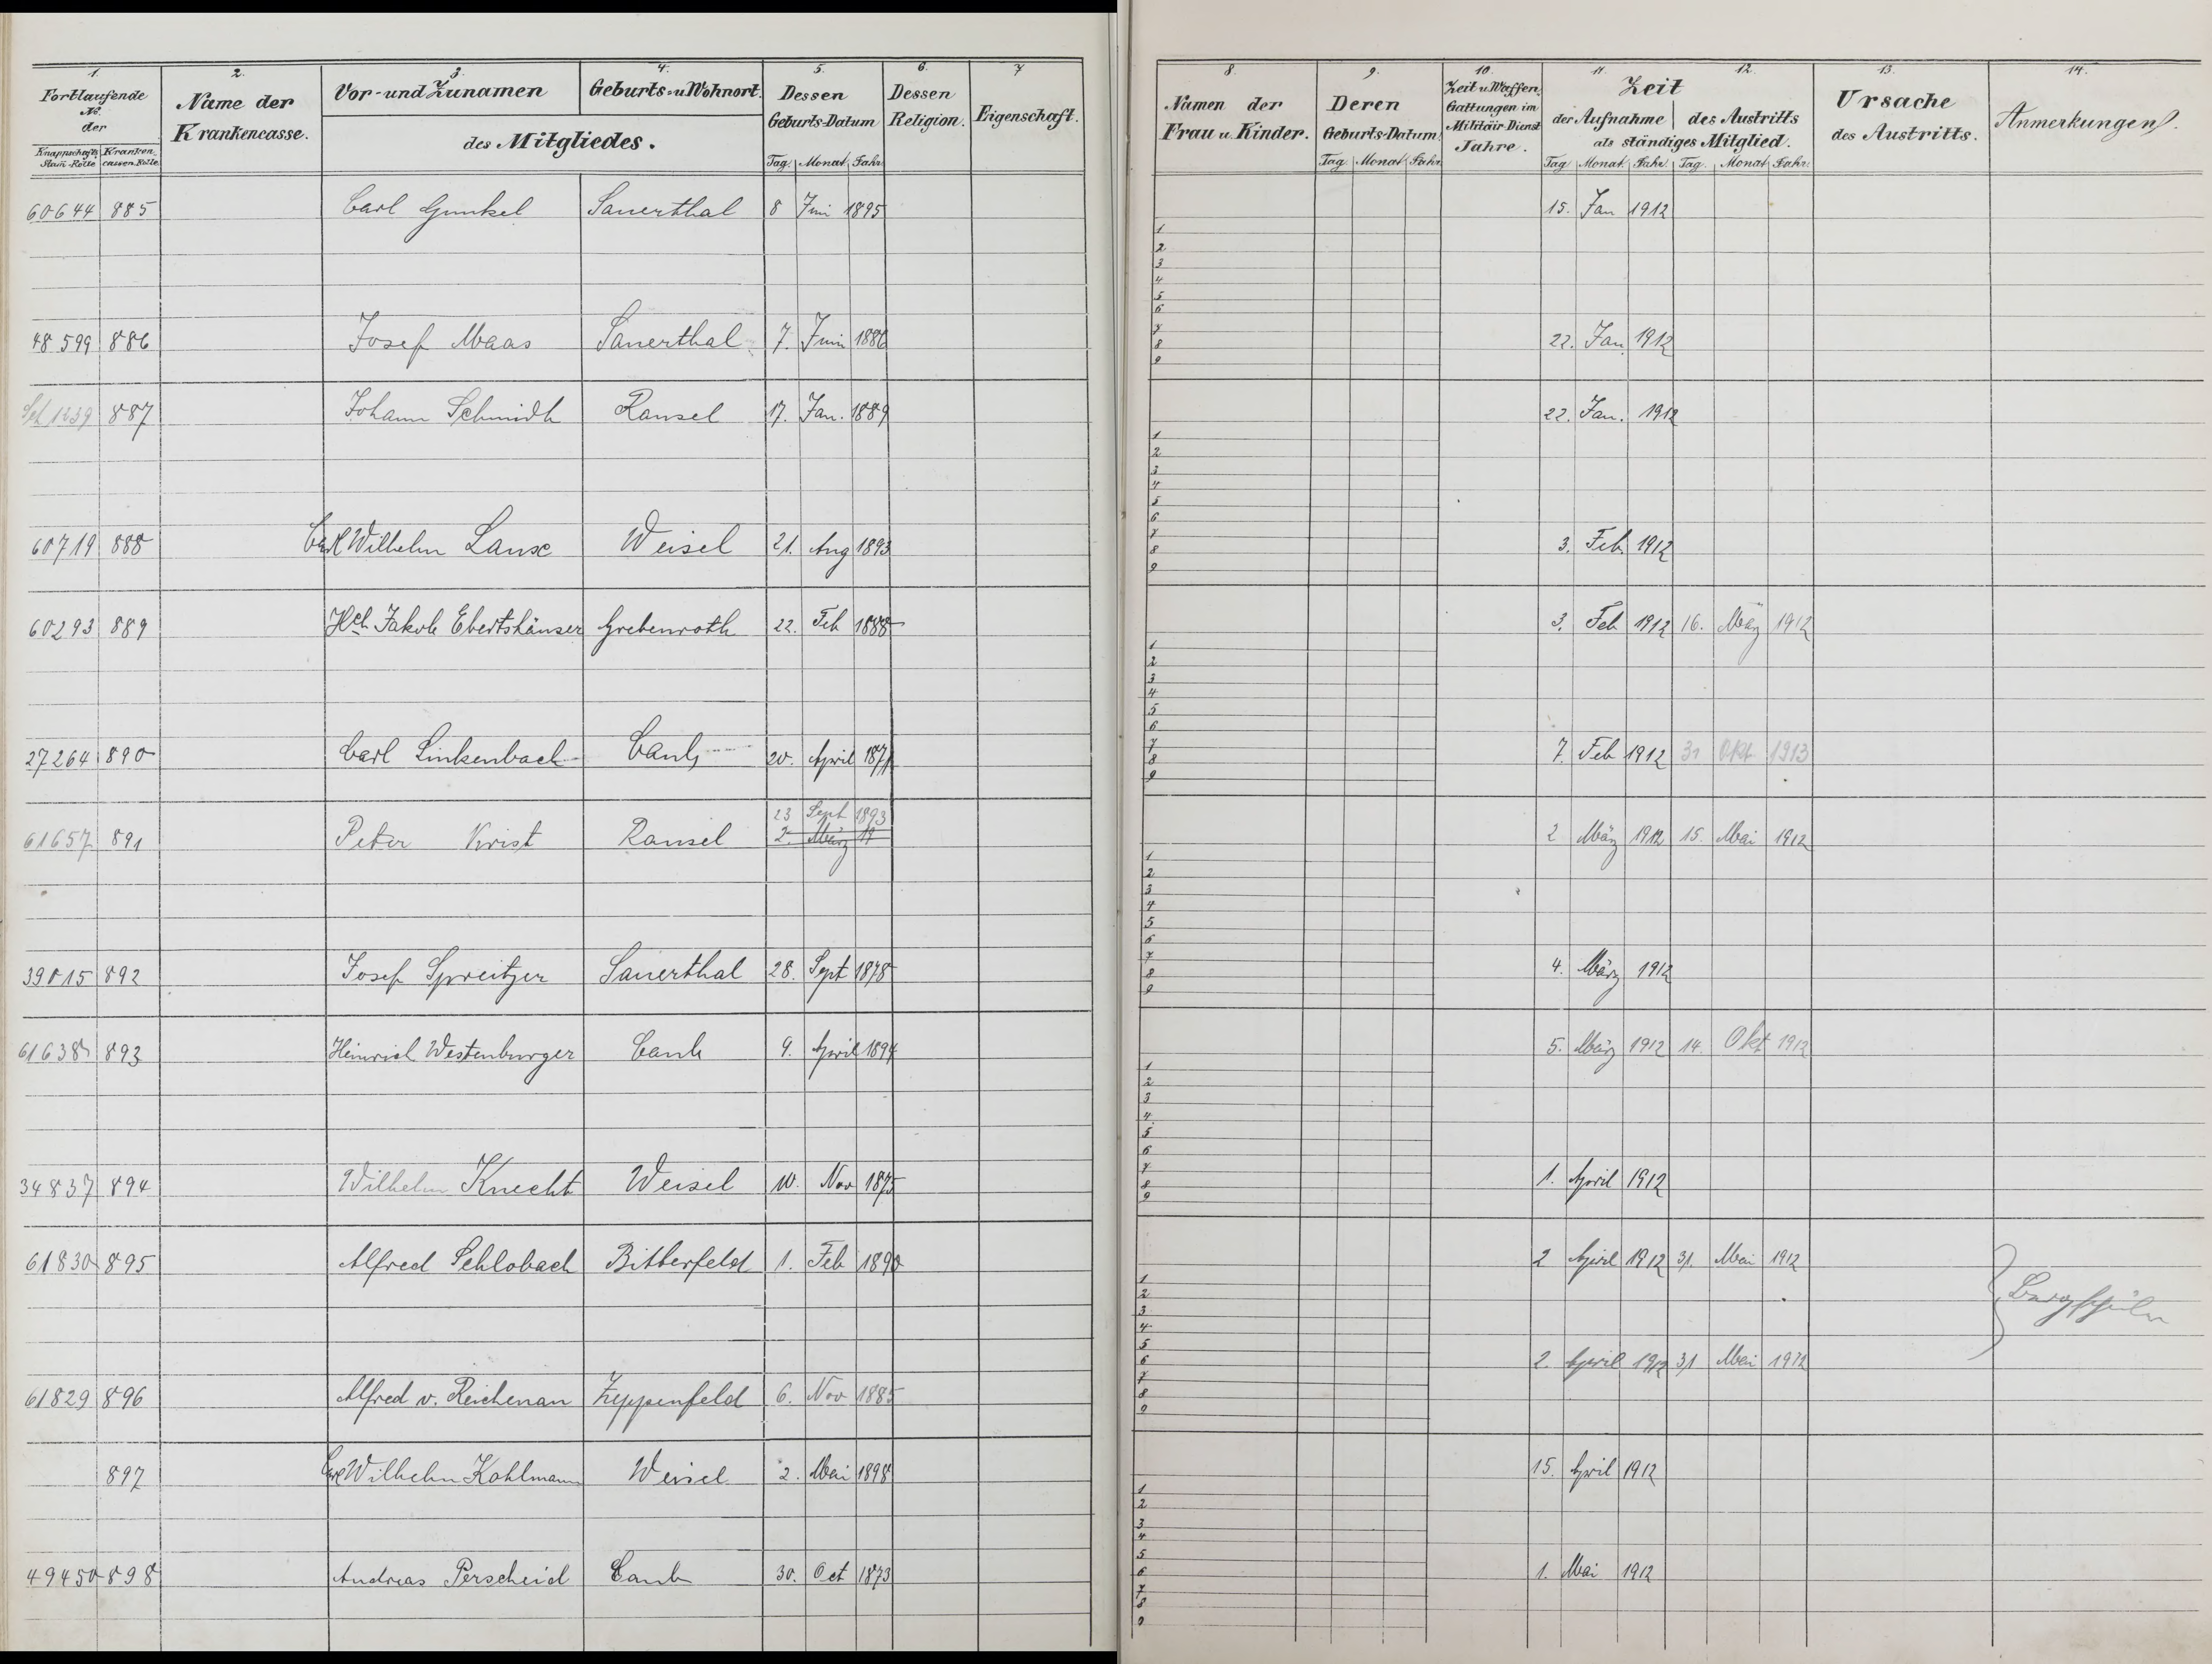 1. 2. 3. 4. 5. 6. 7
Fortlaufende No. der
Knappschafts Stam-Rolle Kranken cassen Rolle
Name der Krankencasse.
Vor- und Zunamen Geburts- u Wohnort.
des Mitgliedes.
Dessen Geburts-Datum
Tag. Monat Jahr
Dessen Religion.
Eigenschaft.
60644 885 Carl Gunkel Sauerthal 8 Juni 1895
48599 886 Josef Maas Sauerthal 7. Juni 1886
1239 887 Johann Schmidt Ransel 17. Jan. 1889
60719 888 Carl Wilhelm Lanse Weisel 21. Aug 1893
60293 889 Hch Jakob Ebertshäuser Grebenroth 22. Feb 1888
27264 890 Carl Linkenbach Caub 20. April 1871
23 Sept 1893
61657 891 Peter Krist Ransel 2. März 19
39015 892 Josef Spreitzer Sauerthal 28. Sept 1878
61638 893 Heinrich Westenburger Caub 9. April 1894
34837 894 Wilhelm Knecht Weisel 10. Nov 1875
61830 895 Alfred Schlobach Bitterfeld 1. Feb 1890
61829 896 Alfred v. Reichenau Zeppenfeld 6. Nov 1885
897 Carl Wilhelm Kohlmann Weisel 2. Mai 1898
49450 898 Andreas Perscheid Caub 30. Oct 1873
8. 9. 10. 11. 12. 13. 14.
Namen der Frau u. Kinder.
Deren Geburts-Datum.
Tag. Monat Jahr.
Zeit u. Waffen Gattungen im Militäir-Dienst Jahre.
Zeit
der Aufnahme des Austritts
als ständiges Mitglied.
Tag Monat Jahr Tag. Monat Jahr.
Ursache des Austritts.
Anmerkungen.
15. Jan 1912
1
2
3
4
5
6
7
22. Jan. 1912
8
9
22. Jan. 1912
1
2
3
4
5
6
7
3. Feb. 1912
8
9
3. Feb 1912 16. März 1912
1
2
3
4
5
6
7
7. Feb 1912 31 Okt. 1913
8
9
2 März 1912 15. Mai 1912
1
2
3
4
5
6
7
4. März 1912
8
9
5. März 1912 14. Okt 1912
1
2
3
4
5
6
7
1. April 1912
8
9
2 April 1912 31. Mai 1912
1
2
Bergschüler
3
4
5
6
2. April 1912 31 Mai 1912
7
8
9
15. April 1912
1
2
3
4
5
6
1. Mai 1912
7
8
9